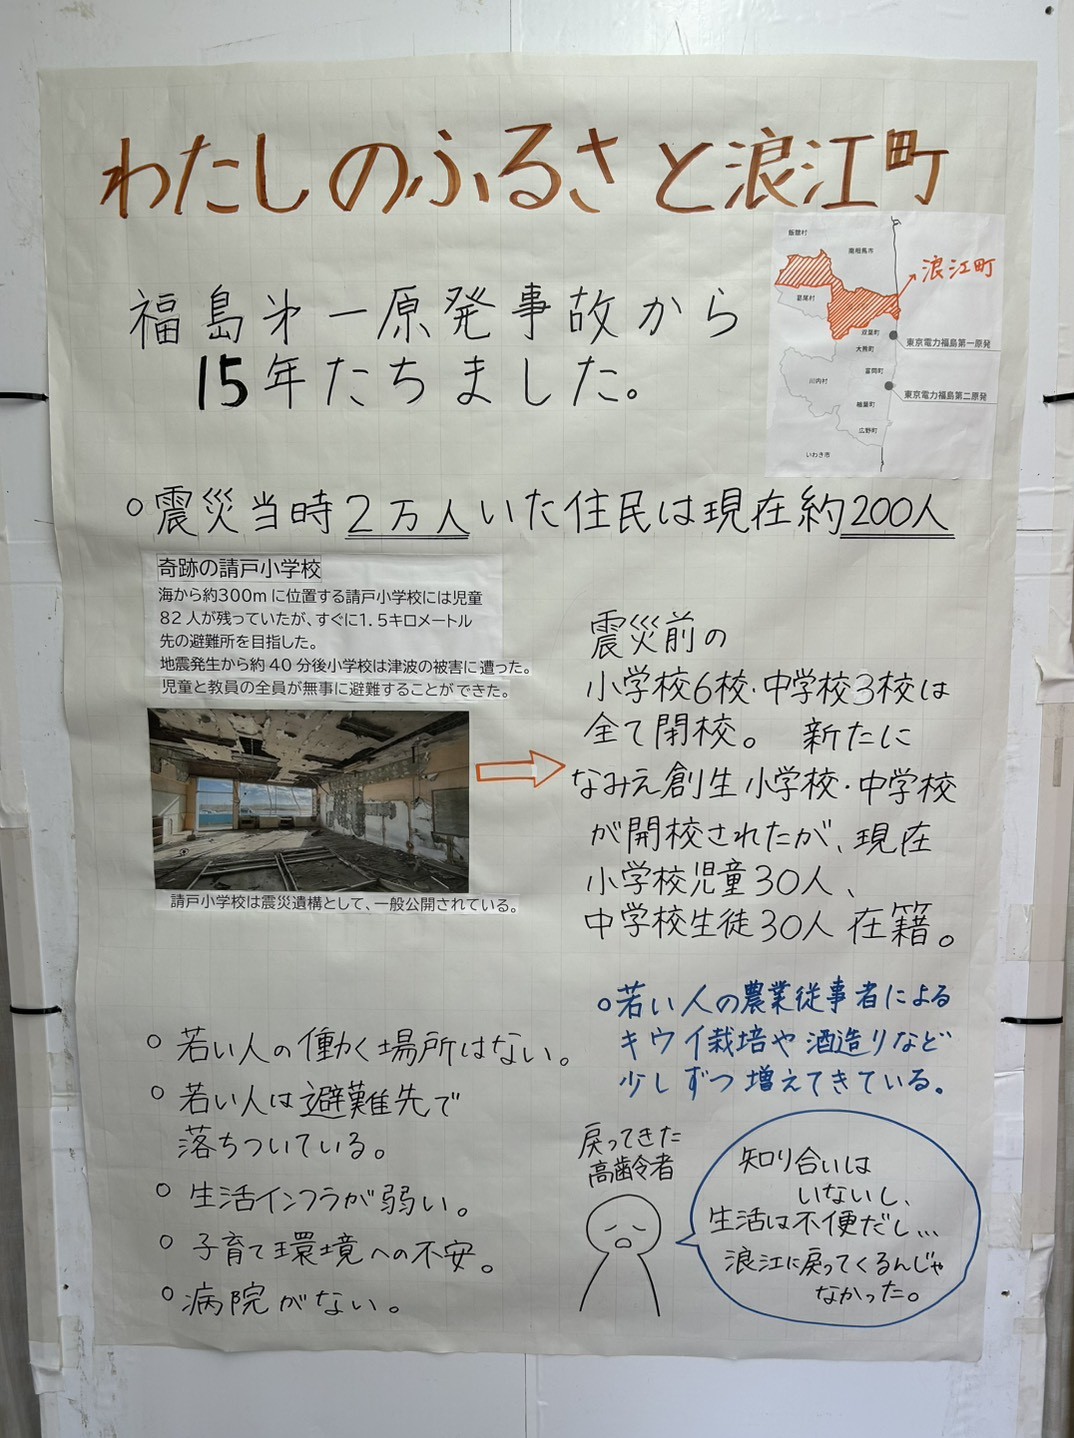 わたしのふるさと浪江町
福島㐧一原発事故から
15年たちました。
飯舘村
南相馬市
浪江町
葛尾村
双葉町
東京電力福島第一原発
大熊町
富岡町
川内村
東京電力福島第二原発
楢葉町
広野町
いわき市
○震災当時2万人いた住民は現在約200人
奇跡の請戸小学校
海から約300mに位置する請戸小学校には児童
82人が残っていたが、すぐに1.5キロメートル
先の避難所を目指した。
地震発生から約40分後小学校は津波の被害に遭った。
児童と教員の全員が無事に避難することができた。
請戸小学校は震災遺構として、一般公開されている。
震災前の
小学校6校・中学校3校は
全て閉校。 新たに
なみえ創生小学校・中学校
が開校されたが、現在
小学校児童30人、
中学校生徒30人在籍。
○若い人の農業従事者による
キウイ栽培や酒造りなど
少しずつ増えてきている。
○若い人の働く場所はない。
○若い人は避難先で
落ちついている。
○生活インフラが弱い。
○子育て環境への不安。
○病院がない。
戻ってきた
高齢者
知り合いは
いないし、
生活は不便だし…
浪江に戻ってくるんじゃ
なかった。